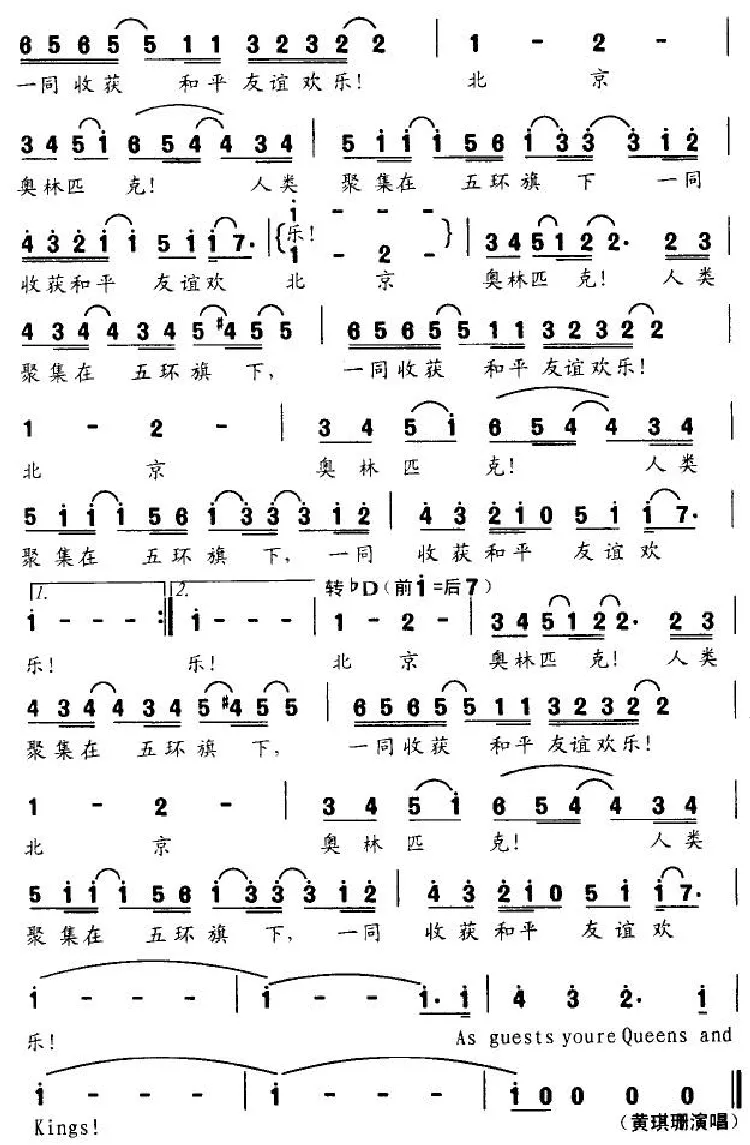 6 5 6 5 5 1 1 3 2 3 2 2 | 1 - 2 - |
一同收获 和平友谊欢乐! 北 京
3 4 5 i 6 5 4 4 3 4 | 5 i i i 5 6 i 3 3 3 i 2
奥林匹 克! 人类 聚集在 五环旗 下 一同
4 3 2 i i 5 i i 7. { i - - - } | 3 4 5 1 2 2. 2 3
乐!
1 - 2 -
收获和平 友谊欢 北 京 奥林匹 克! 人类
4 3 4 4 3 4 5 #4 5 5 | 6 5 6 5 5 1 1 3 2 3 2 2 |
聚集在 五环旗 下, 一同收获 和平友谊欢乐!
1 - 2 - | 3 4 5 i 6 5 4 4 3 4 |
北 京 奥林匹 克! 人类
5 i i i 5 6 i 3 3 3 i 2 | 4 3 2 i 0 5 i i 7. |
聚集在 五环旗 下, 一同 收获和平 友谊欢
1. 2. 转♭D(前i=后7)
i - - - :| i - - - | 1 - 2 - | 3 4 5 1 2 2. 2 3 |
乐! 乐! 北 京 奥林匹 克! 人类
4 3 4 4 3 4 5 #4 5 5 | 6 5 6 5 5 1 1 3 2 3 2 2 |
聚集在 五环旗 下, 一同收获 和平友谊欢乐!
1 - 2 - | 3 4 5 i 6 5 4 4 3 4 |
北 京 奥林匹 克! 人类
5 i i i 5 6 i 3 3 3 i 2 | 4 3 2 i 0 5 i i 7. |
聚集在 五环旗 下, 一同 收获和平 友谊欢
i - - - | i - - i. i | 4 3 2. i |
乐! As guests youre Queens and
i - - - | i - - - | i 0 0 0 0 ||
Kings! (黄琪珊演唱)